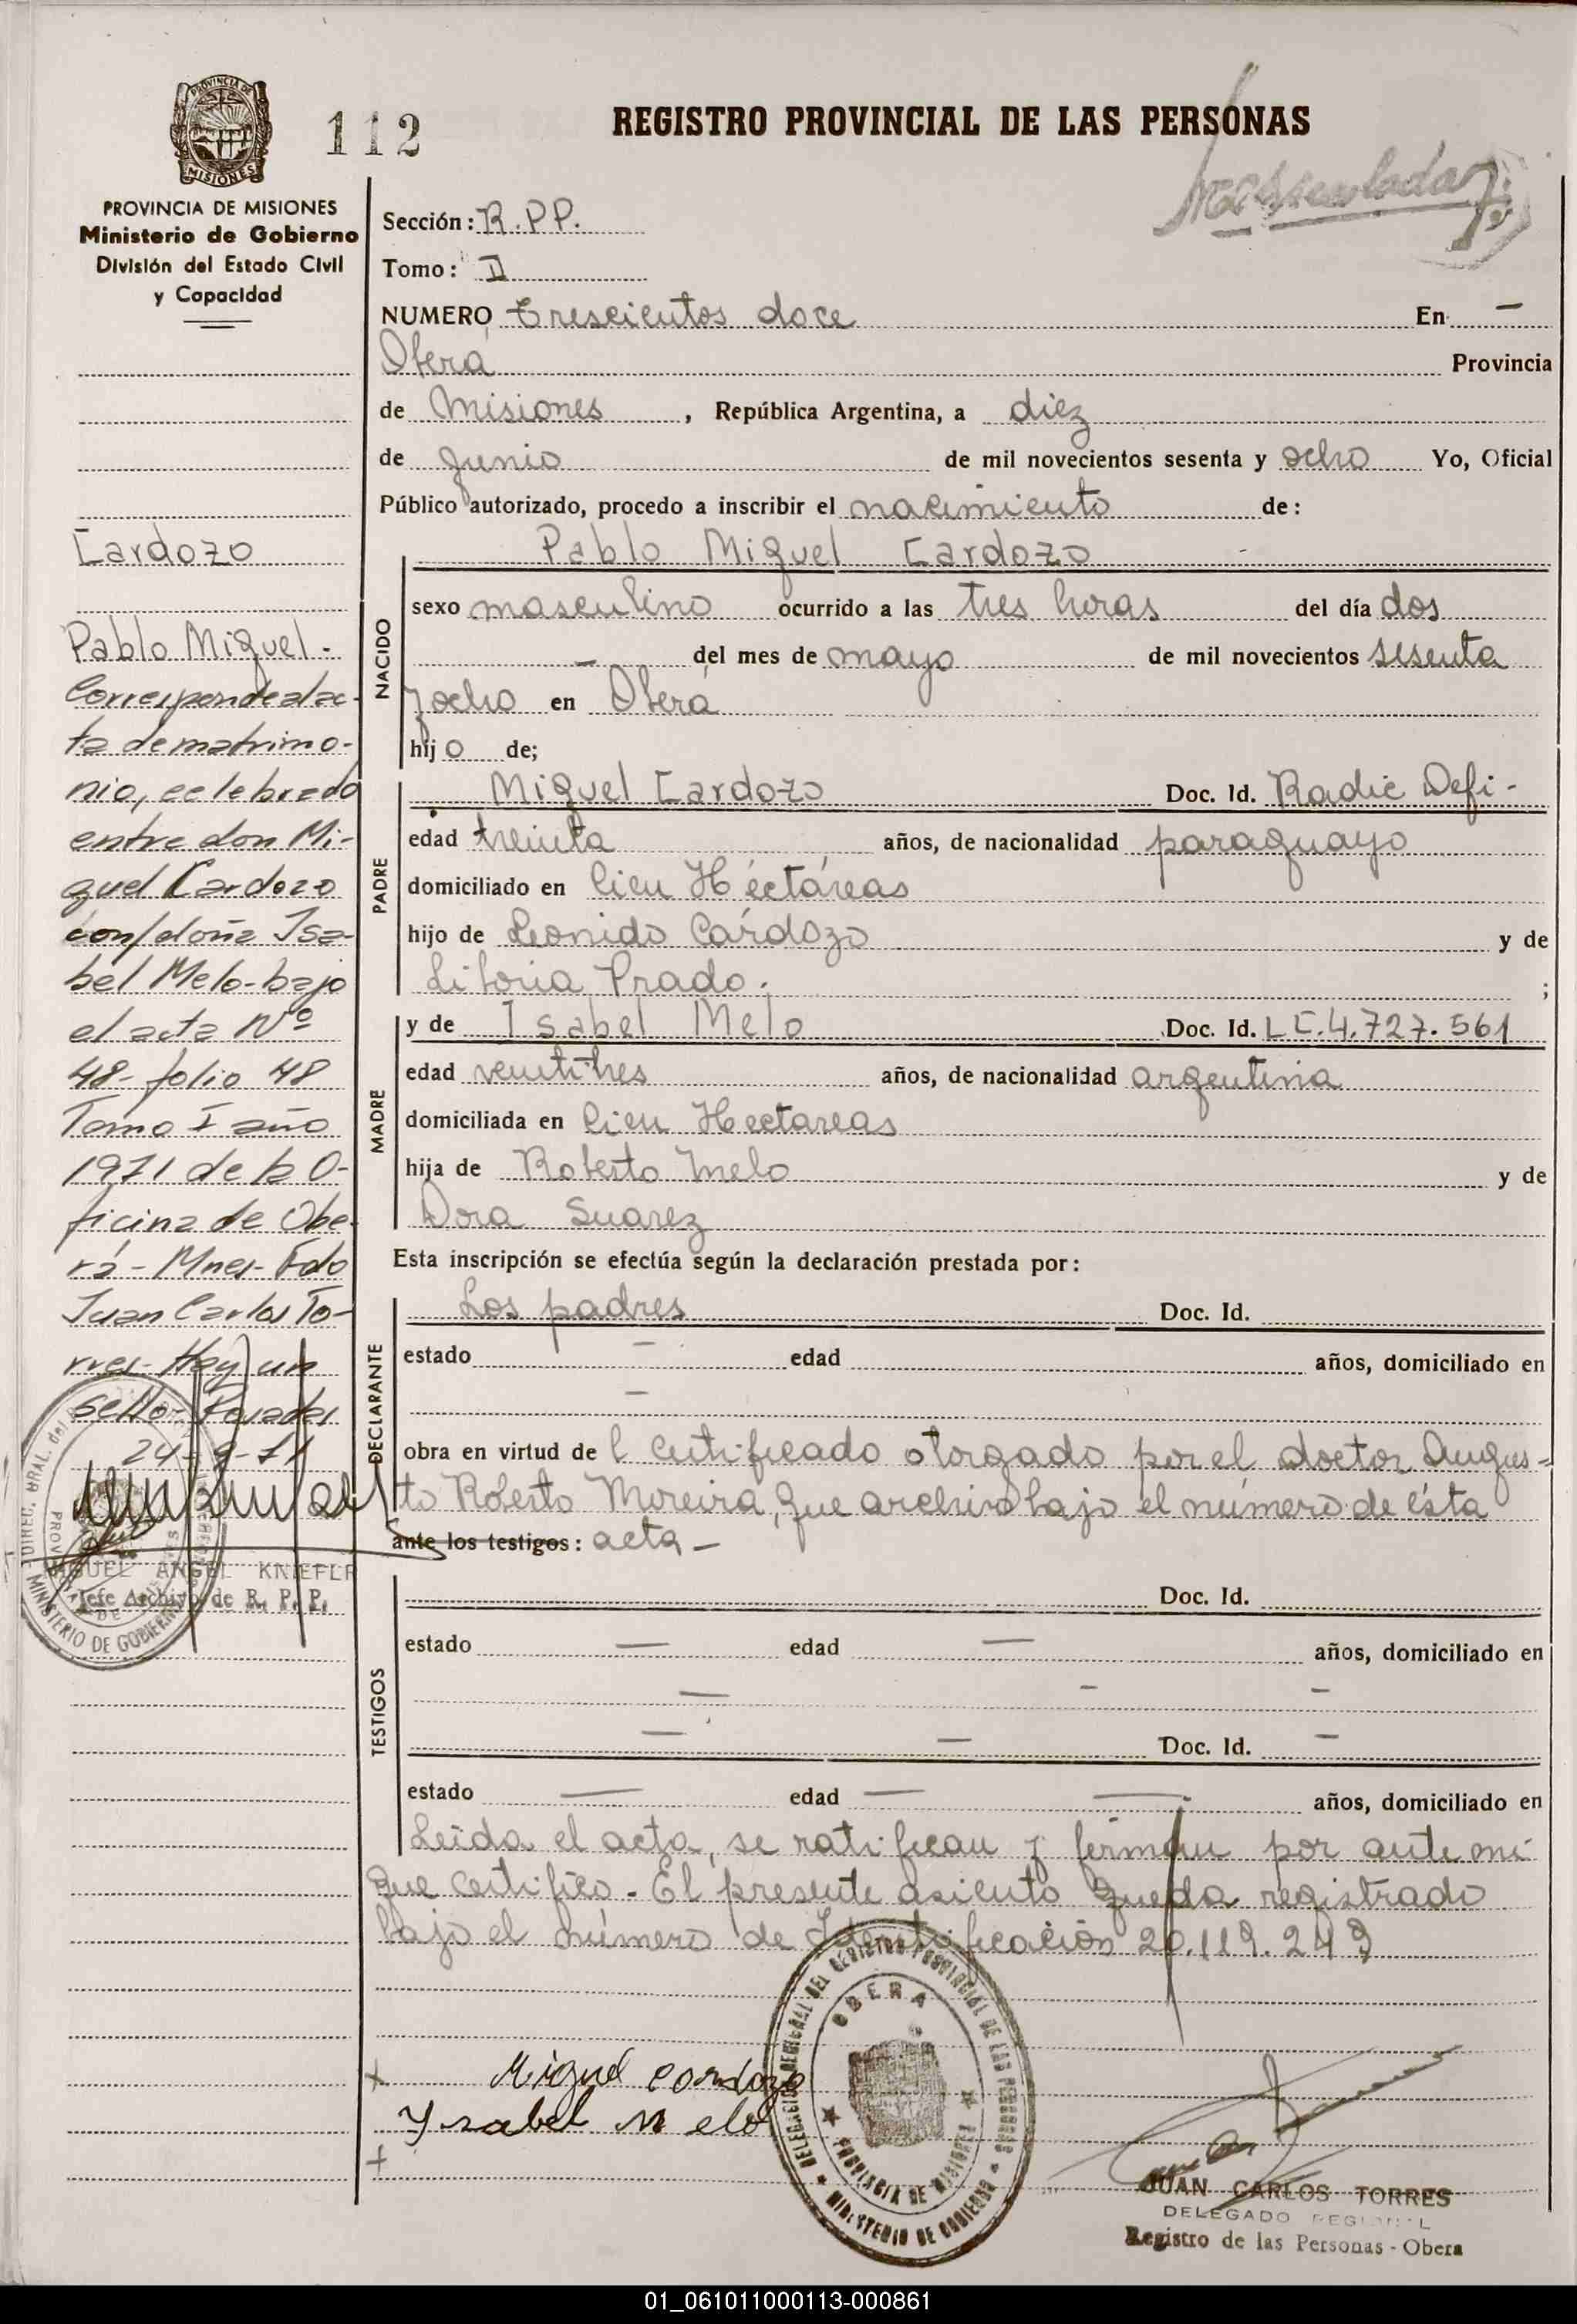 112
REGISTRO PROVINCIAL DE LAS PERSONAS
PROVINCIA DE
MISIONES
PROVINCIA DE MISIONES
Ministerio de Gobierno
División del Estado Civil
y Capacidad
Sección: R.PP.
Tomo: II
NUMERO Trescientos doce En —
Oberá Provincia
de Misiones, República Argentina, a diez
de Junio de mil novecientos sesenta y ocho Yo, Oficial
Público autorizado, procedo a inscribir el nacimiento de:
Pablo Miguel Cardozo
NACIDO
sexo masculino ocurrido a las tres horas del día dos
— del mes de mayo de mil novecientos sesenta
y ocho en Oberá
hijo de;
PADRE
Miguel Cardozo Doc. Id. Radic Defi-
edad treinta años, de nacionalidad paraguayo
domiciliado en Cien Héctáreas
hijo de Leonido Cardozo y de
Liboria Prado. ;
MADRE
y de Isabel Melo Doc. Id. LC.4.727.561
edad veintitres años, de nacionalidad argentina
domiciliada en Cien Hectareas
hija de Roberto Melo y de
Dora Suarez
Esta inscripción se efectúa según la declaración prestada por:
DECLARANTE
Los padres Doc. Id.
estado — edad años, domiciliado en
—
obra en virtud del certificado otorgado por el doctor Augus-
to Roberto Moreira, que archivo bajo el número de ésta
ante los testigos: acta —
TESTIGOS
Doc. Id.
estado — edad — años, domiciliado en
— — —
— — Doc. Id. —
estado — edad — — años, domiciliado en
Leída el acta, se ratifican y firman por ante mi
que certifico. El presente asiento queda registrado
bajo el número de Identificación 20.119.249
Miguel Cardozo
Ysabel Melo
DELEGACION REGIONAL DEL REGISTRO PROVINCIAL DE LAS PERSONAS
OBERA
PROVINCIA DE MISIONES
MINISTERIO DE GOBIERNO
JUAN CARLOS TORRES
DELEGADO REGIONAL
Registro de las Personas - Obera
Cardozo
Pablo Miguel -
Corresponde al ac-
ta de matrimo-
nio, celebrado
entre don Mi-
guel Cardozo
con/doña Isa-
bel Melo-bajo
el acta Nº
48- folio 48
Tomo I año
1971 de la O-
ficina de Obe-
rá - Mnes- Fdo
Juan Carlos To-
rres- Hay un
sello- Posadas
24-9-71
MIGUEL ANGEL KNIEFLR
Jefe Archivo de R. P. P.
MINISTERIO DE GOBIERNO
01_061011000113-000861